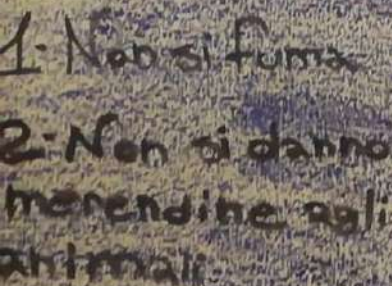 1- Non si fuma
2- Non si danno
merendine agli
animali